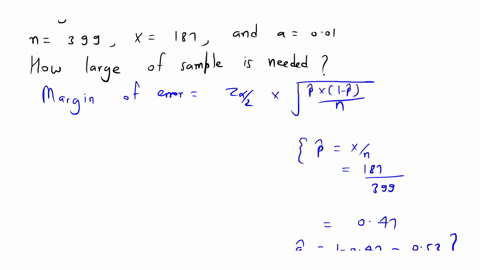 n = 399, x = 187, and a = 0.01
How large of sample is needed?
Margin of error = Zα/2 × √(p̂×(1-p̂)/n)
{ p̂ = x/n
= 187/399
= 0.47
= 1-0.47 = 0.53 }